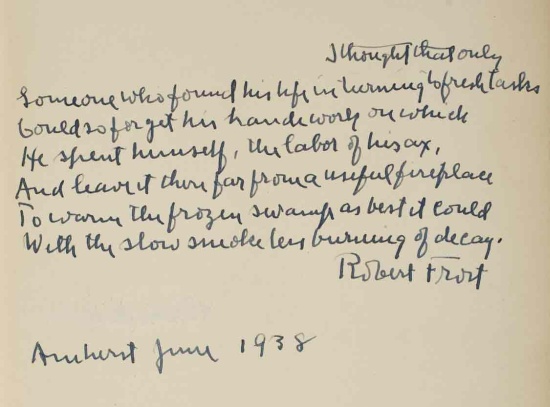 I thought that only
Someone who found his life in turning to fresh tasks
Could so forget his handiwork on which
He spent himself, the labor of his ax,
And leave it there far from a useful fireplace
To warm the frozen swamp as best it could
With the slow smokeless burning of decay.
Robert Frost
Amherst June 1938